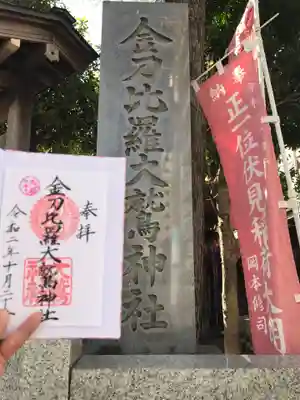 金刀比羅大鷲神社
奉拝
金刀比羅大鷲神社
令和二年十月二十
奉
納
正一位伏見稲荷大明
岡本修司